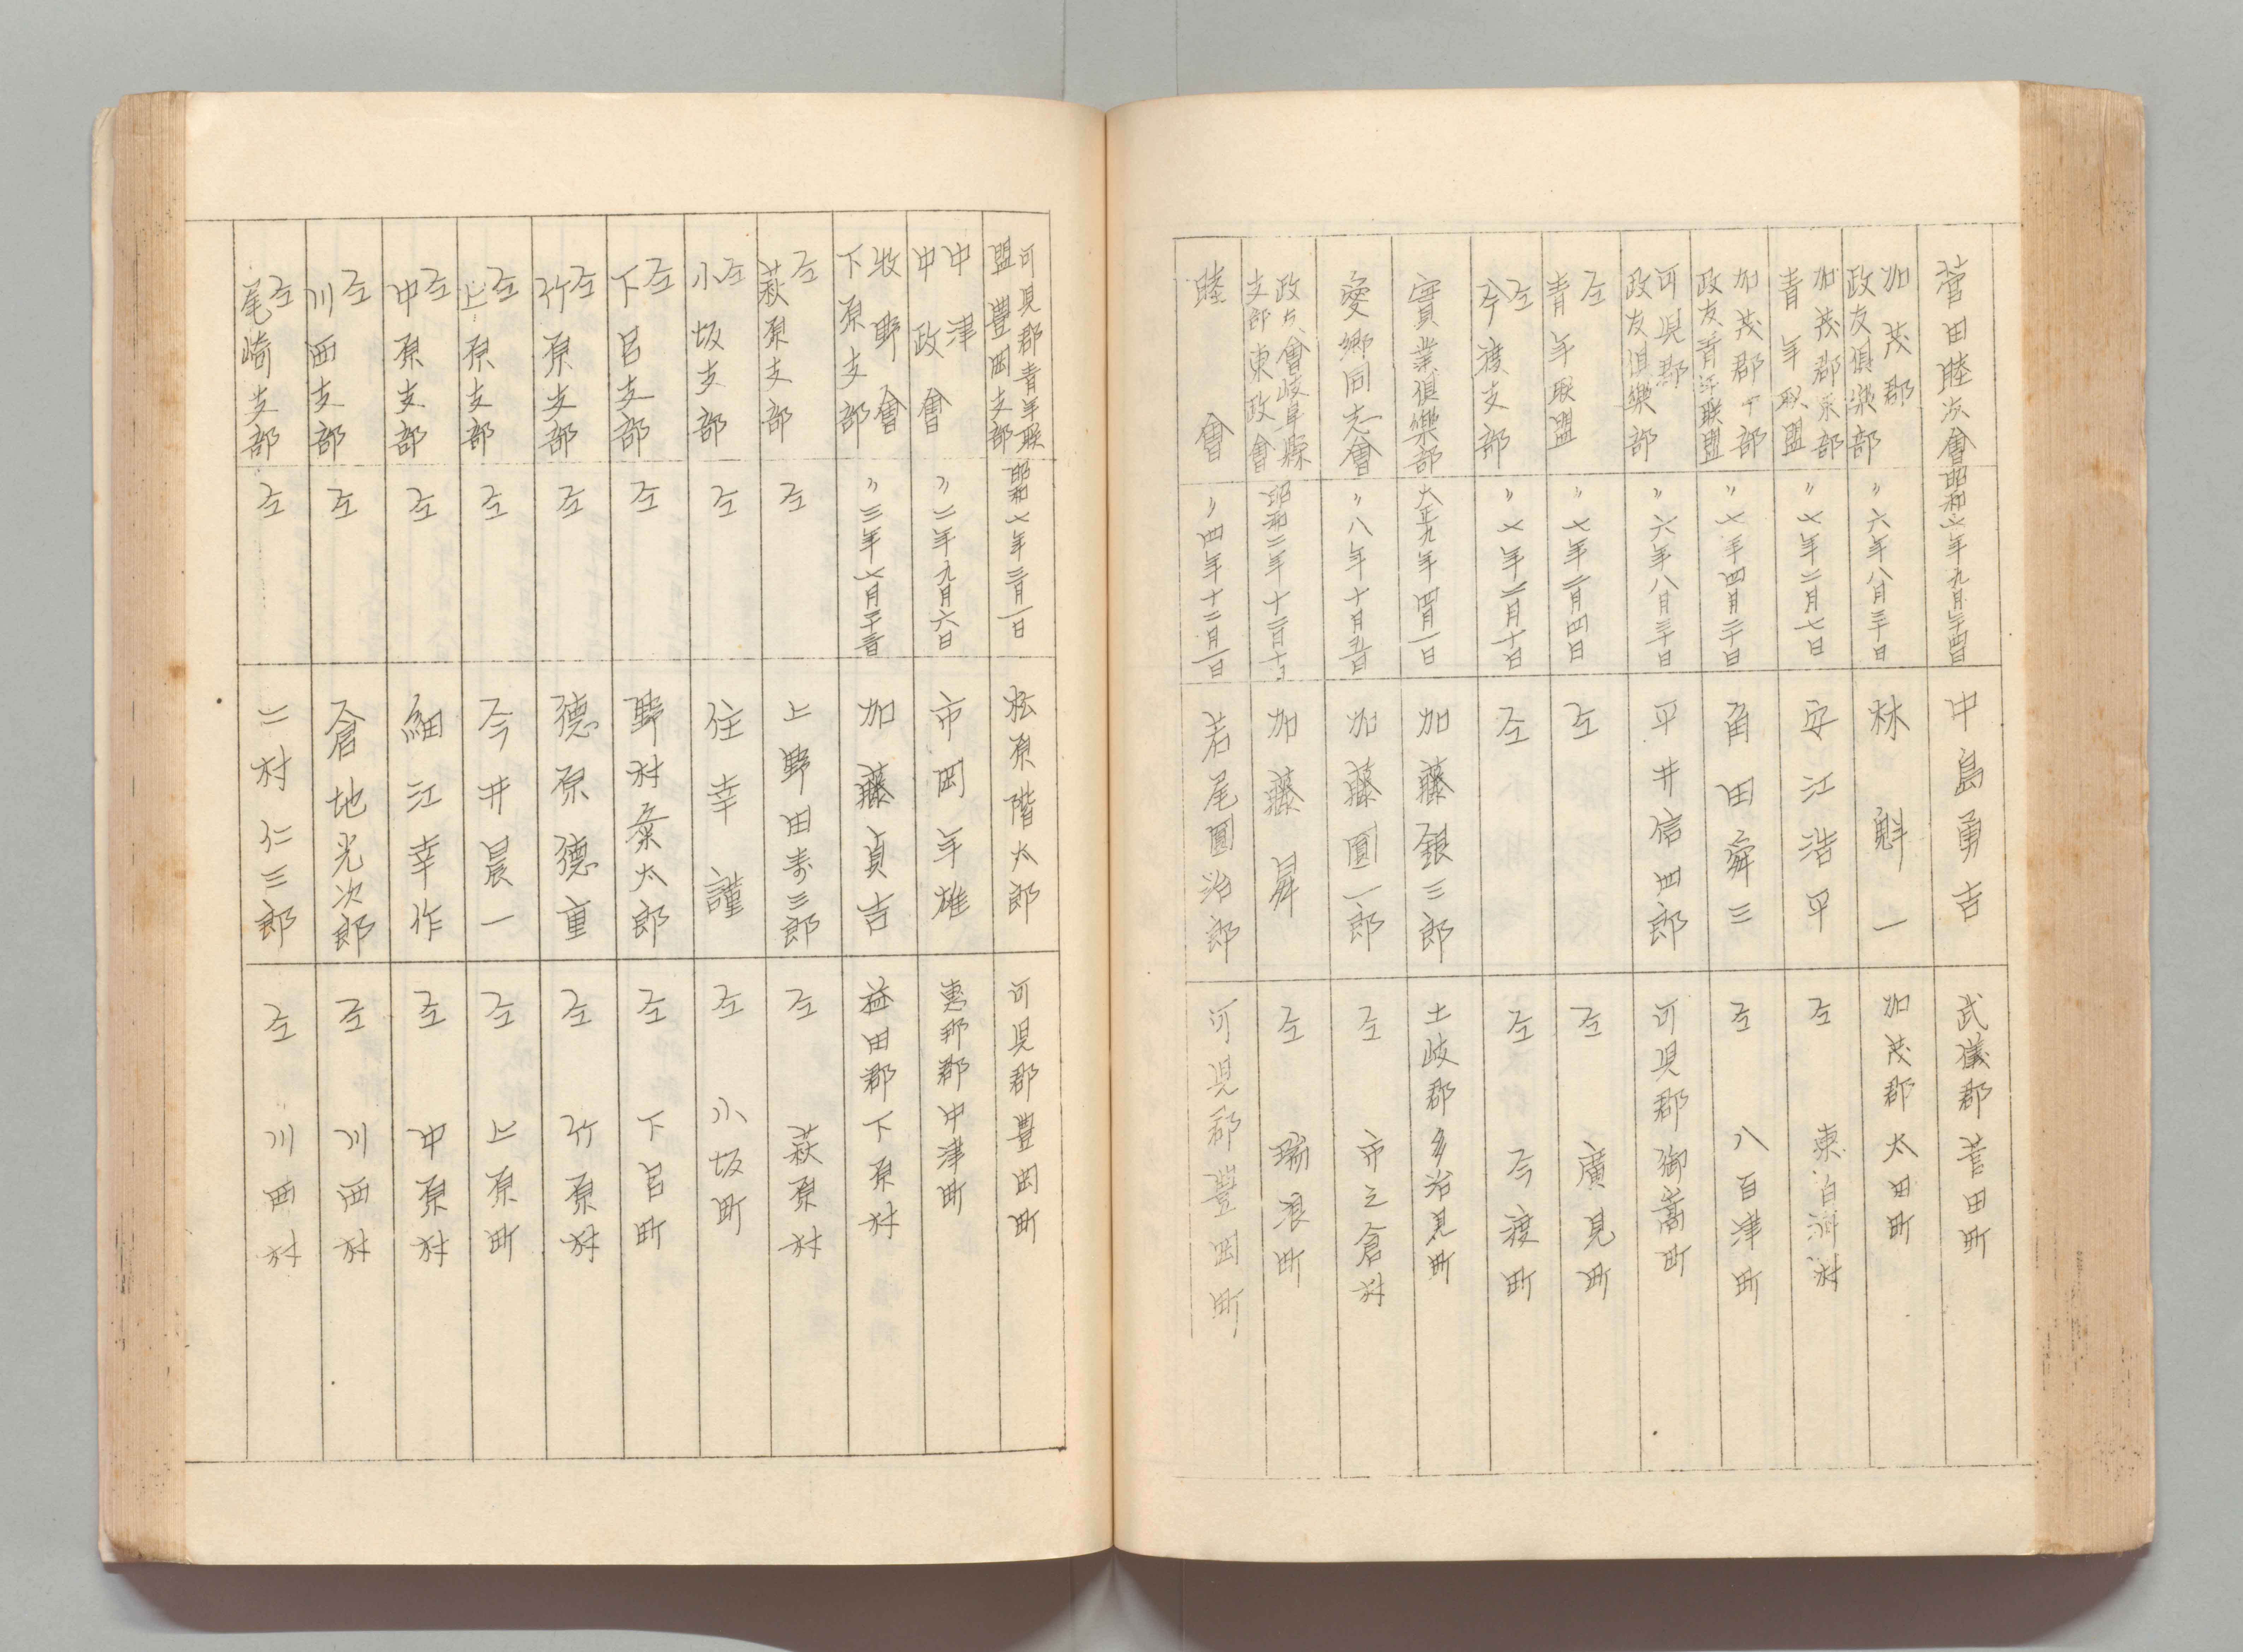 菅田睦次會 昭和六年九月二十四日 中島勇吉 武儀郡菅田町
加茂郡政友倶樂部 〃六年八月三十日 林魁一 加茂郡太田町
加茂郡東部青年联盟 〃七年二月七日 安江浩平 仝 東白川村
加茂郡中部政友青年联盟 〃七年四月二十日 角田舜三 仝 八百津町
可児郡政友倶樂部 〃六年八月三十日 平井信四郎 可児郡御嵩町
仝青年联盟 〃七年二月四日 仝 仝 廣見町
仝今渡支部 〃七年二月十日 仝 仝 今渡町
實業倶樂部 大正九年四月一日 加藤銀三郎 土岐郡多治見町
愛郷同志會 〃八年十月五日 加藤圓一郎 仝 市之倉村
政友會岐阜縣支部東政會 昭和二年十二月十 加藤昇 仝 瑞浪町
睦會 〃四年十二月一日 若尾圓治郎 可児郡豐岡町
可児郡青年联盟豊岡支部 昭和七年三月一日 松原階太郎 可児郡豊岡町
中津中政會 〃二年九月六日 市岡年雄 恵那郡中津町
牧野會下原支部 〃三年七月二十三日 加藤貞吉 益田郡下原村
仝萩原支部 仝 上野田寿三郎 仝 萩原村
仝小坂支部 仝 住幸謹 仝 小坂町
仝下呂支部 仝 野村粂太郎 仝 下呂町
仝竹原支部 仝 德原德重 仝 竹原村
仝上原支部 仝 今井晨一 仝 上原町
仝中原支部 仝 細江幸作 仝 中原村
仝川西支部 仝 倉地光次郎 仝 川西村
仝尾崎支部 仝 二村仁三郎 仝 川西村